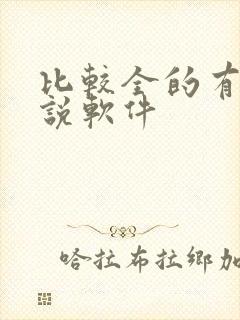 比較全的有
說軟件
哈拉布拉鄉加